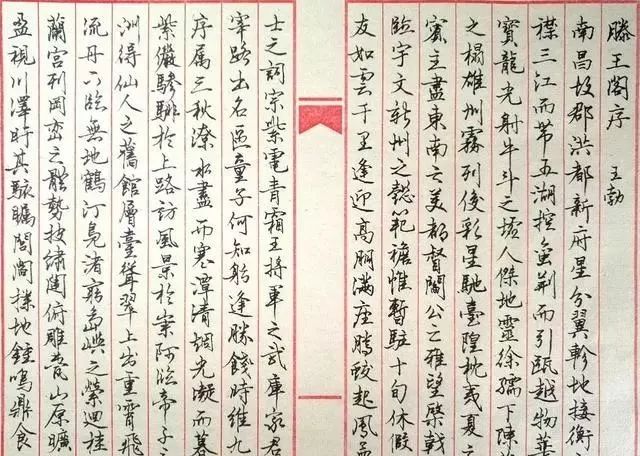 滕王閣序 王勃
南昌故郡洪都新府星分翼軫地接衡
襟三江而帶五湖控蛮荆而引甌越物華
寶龍光射牛斗之墟人傑地靈徐孺下陳
之榻雄州霧列俊彩星馳臺隍枕夷夏之
賓主盡東南之美都督閻公之雅望棨戟
臨宇文新州之懿範襜帷暫駐十旬休假
友如雲千里逢迎高朋滿座騰蛟起鳳孟
士之詞宗紫電青霜王將軍之武庫家君
宰路出名區童子何知躬逢勝餞時維九
序屬三秋潦水盡而寒潭清烟光凝而暮
紫儼驂騑於上路訪風景於崇阿臨帝子之
洲得仙人之舊館層臺聳翠上出重霄飛
流丹下臨無地鶴汀鳧渚窮島嶼之縈迴桂
蘭宫列岡巒之體勢披繡闥俯雕甍山原曠
盈視川澤盱其駭矚閭閻撲地鐘鳴鼎食